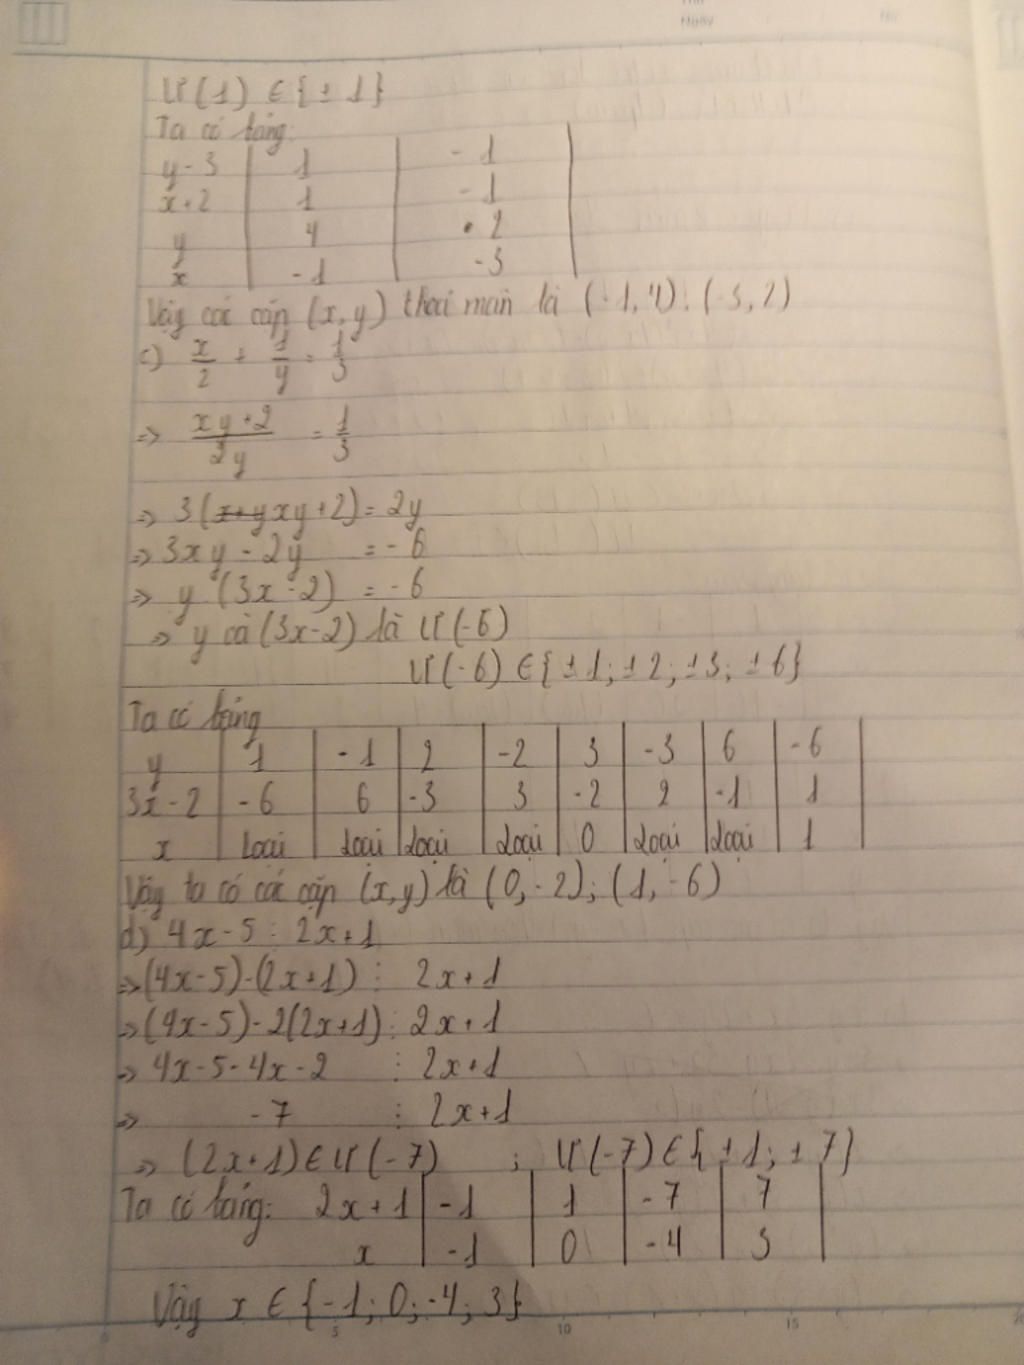 Ngày
Ư(1) ∈ {±1}
Ta có bảng:
y-3 | 1 | -1
x+2 | 1 | -1
y | 4 | 2
x | -1 | -3
Vậy các cặp (x,y) thoải mãn là (-1,4); (-3,2)
c) x/2 + 1/y = 1/3
=> (xy+2)/2y = 1/3
=> 3(x+y xy+2) = 2y
=> 3xy - 2y = -6
=> y (3x-2) = -6
=> y cà (3x-2) là Ư(-6)
Ư(-6) ∈ {±1; ±2; ±3; ±6}
Ta có bảng
y | 1 | -1 | 2 | -2 | 3 | -3 | 6 | -6
3x-2 | -6 | 6 | -3 | 3 | -2 | 2 | -1 | 1
x | Loại | Loại | Loại | Loại | 0 | Loại | Loại | 1
Vậy ta có các cặp (x,y) là (0,-2); (1,-6)
d) 4x-5 ⋮ 2x+1
=> (4x-5)-(2x+1) ⋮ 2x+1
=> (4x-5)-2(2x+1) ⋮ 2x+1
=> 4x-5-4x-2 ⋮ 2x+1
=> -7 ⋮ 2x+1
=> (2x+1) ∈ Ư(-7) ; Ư(-7) ∈ {±1; ±7}
Ta có bảng: 2x+1 | -1 | 1 | -7 | 7
x | -1 | 0 | -4 | 3
Vậy x ∈ {-1; 0; -4; 3}
5 10 15